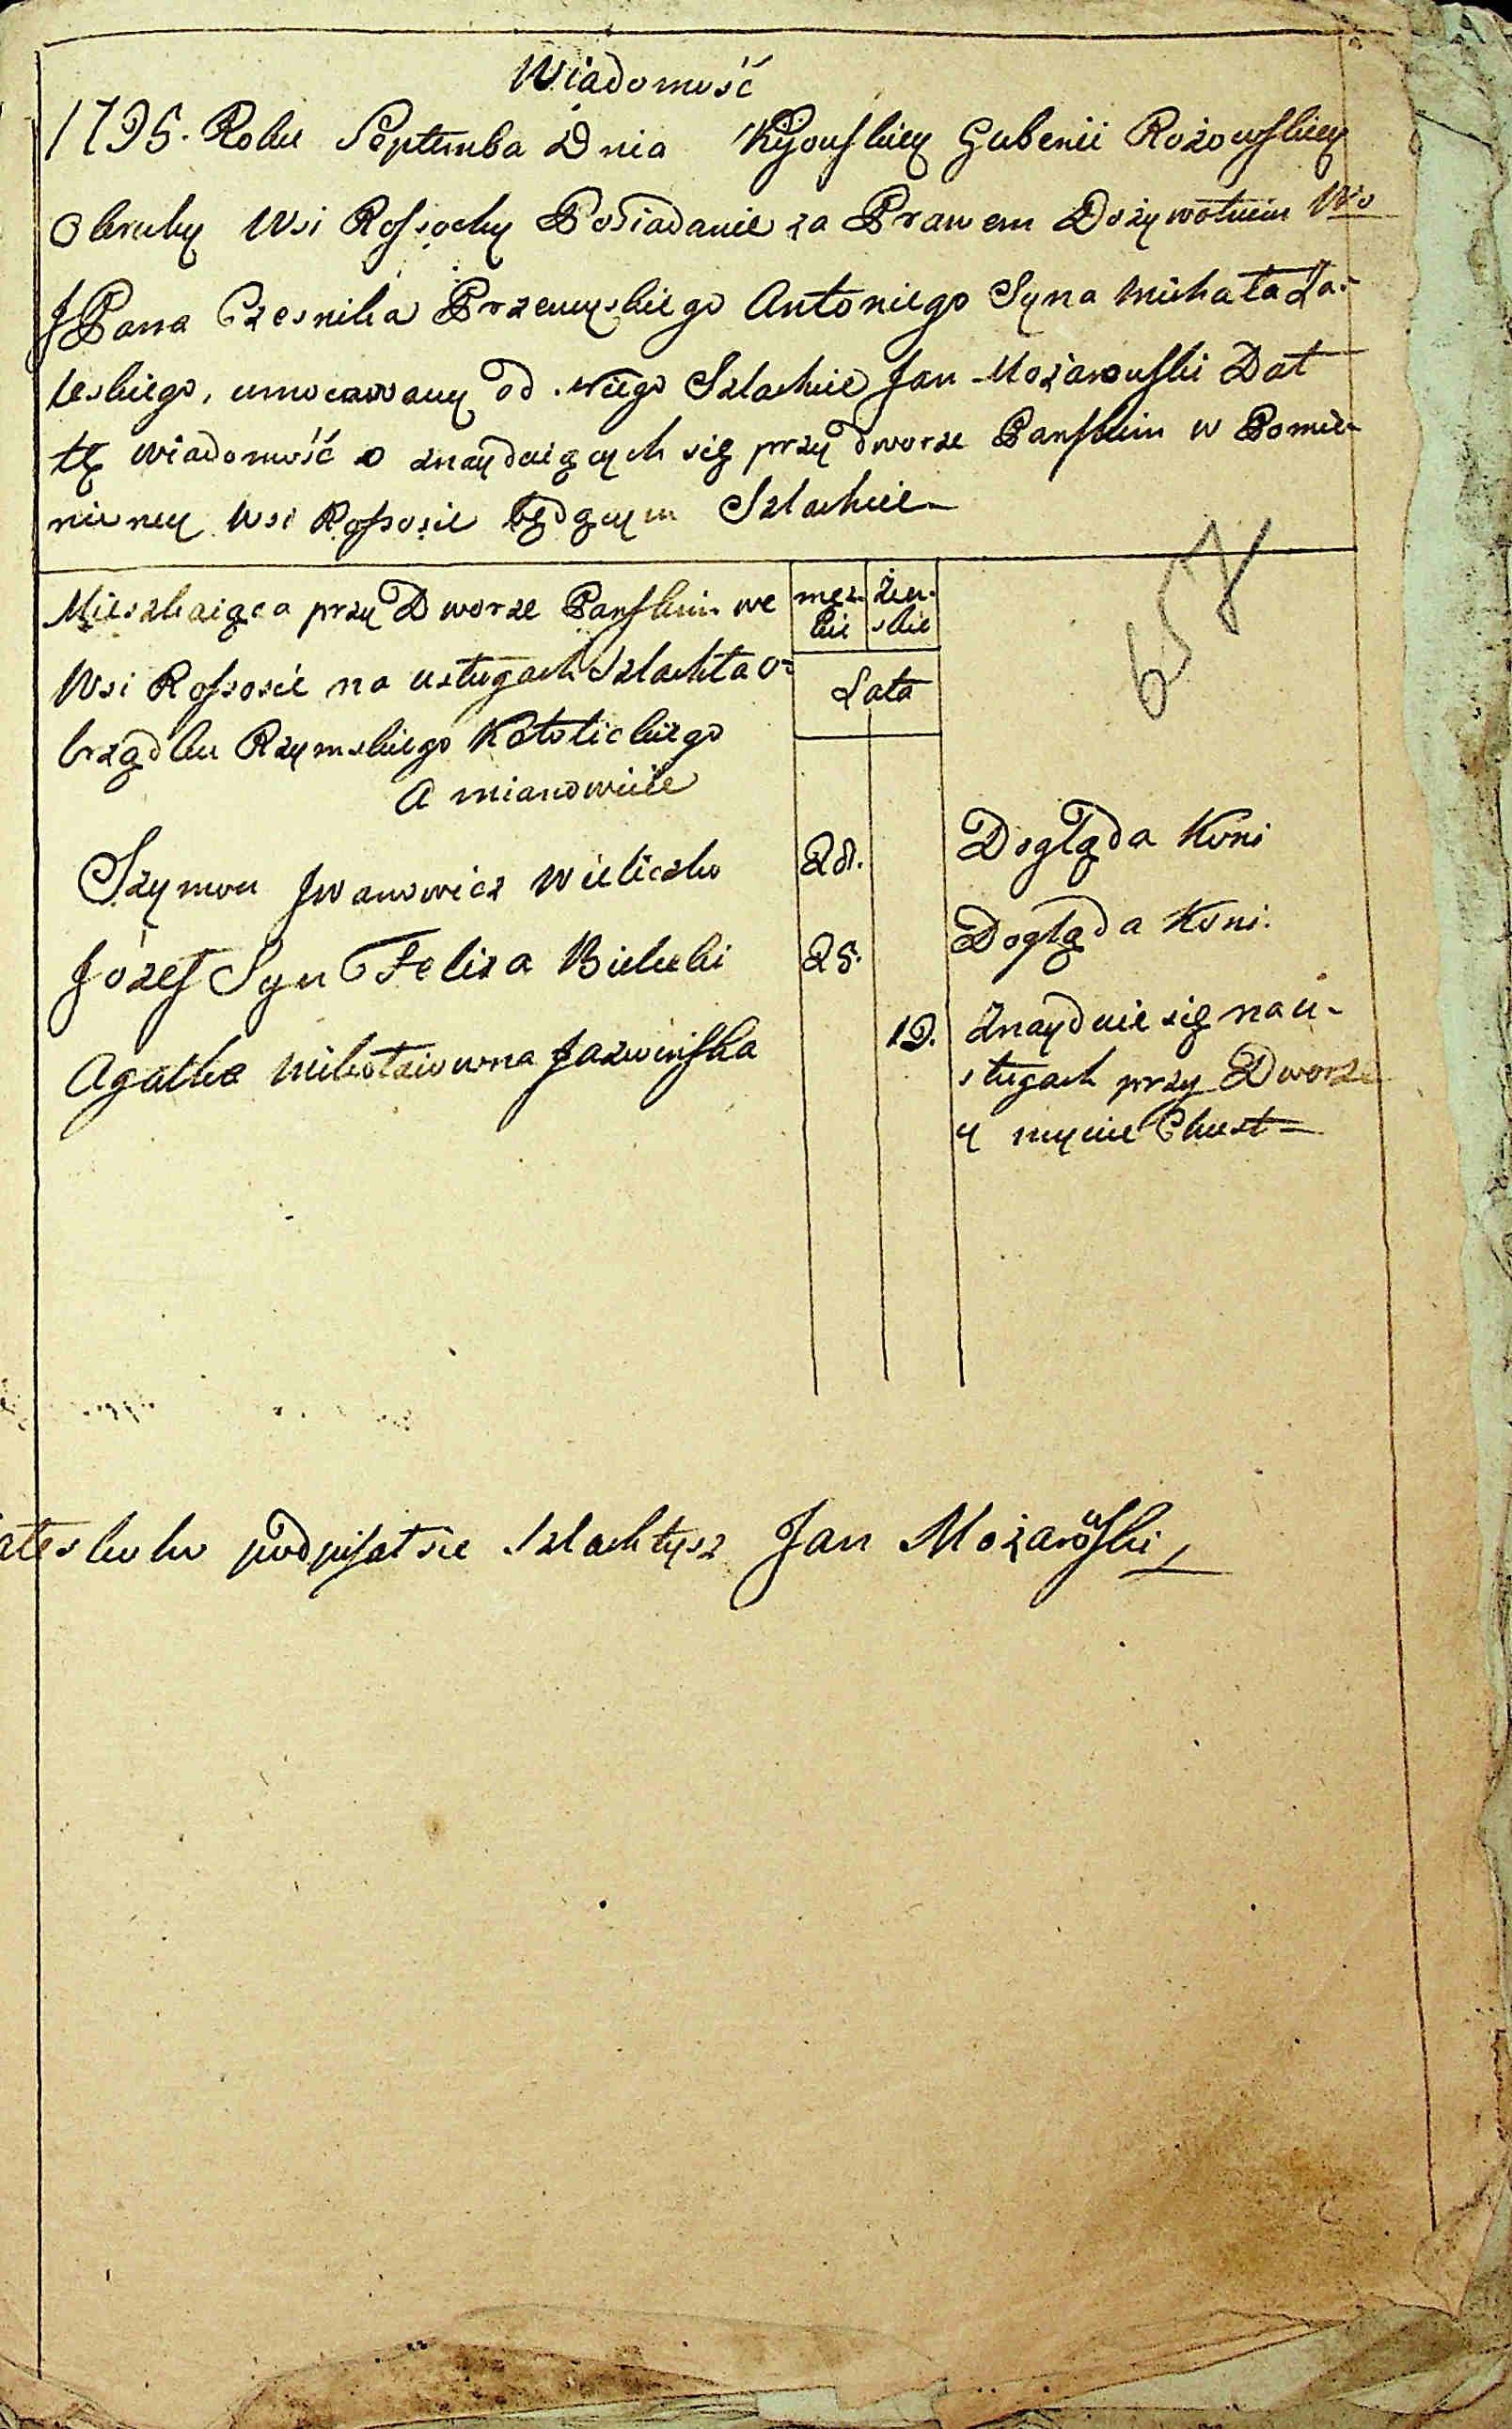 Wiadomość
1795. Roku Septemba Dnia Kijouskiey Gubenii Rożowskiey
Okruhy Wsi Rossochy Posiadanie za Prawem Dożywotnim Wo
JPana Czesnika Przemyskiego Antoniego Syna Michała Za-
leskiego, umocowany od niego Szlachcic Jan Możarowski Dał
tę wiadomość o znayduiących się przy dworze Panskim w Pomie-
nioney Wsi Rossosie będącym Szlachcie
Mieszkaiąca przy Dworze Panskim we
męz- żen-
kie skie
Wsi Rossosie na usługach Szlachta o-
Lata
brządku Rzymskiego Katolickiego
A mianowicie
Szymon Jwanowicz Wieliczko 28. Dogląda Koni
Józef Syn Felixa Bielecki 25. Dogląda Koni.
Agatka Mikołaiowna Jazwinska 19. Znayduie się na u-
sługach przy Dworze
y mycie Chust
657
podpisał sie szlachtycz Jan Możarowski